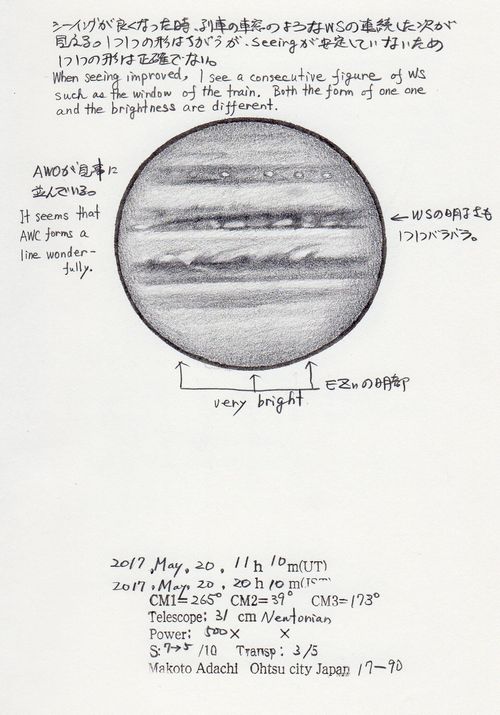 シーイングが良くなった時、列車の車窓のようなWSの連続した次が
見える。1つ1つの形はちがうが、seeingが安定していないため
1つ1つの形は正確でない。
When seeing improved, I see a consecutive figure of WS
such as the window of the train. Both the form of one one
and the brightness are different.
AWOが見事に
並んでいる。
It seems that
AWC forms a
line wonder-
fully.
←WSの明るさも
1つ1つバラバラ。
EZnの明部
very bright
2017, May, 20, 11h 10m(UT)
2017, May, 20, 20h 10m(JST)
CM1=265° CM2=39° CM3=173°
Telescope: 31 cm Newtonian
Power: 500× ×
S: 7→5 /10 Transp: 3/5
Makoto Adachi Ohtsu city Japan 17-90